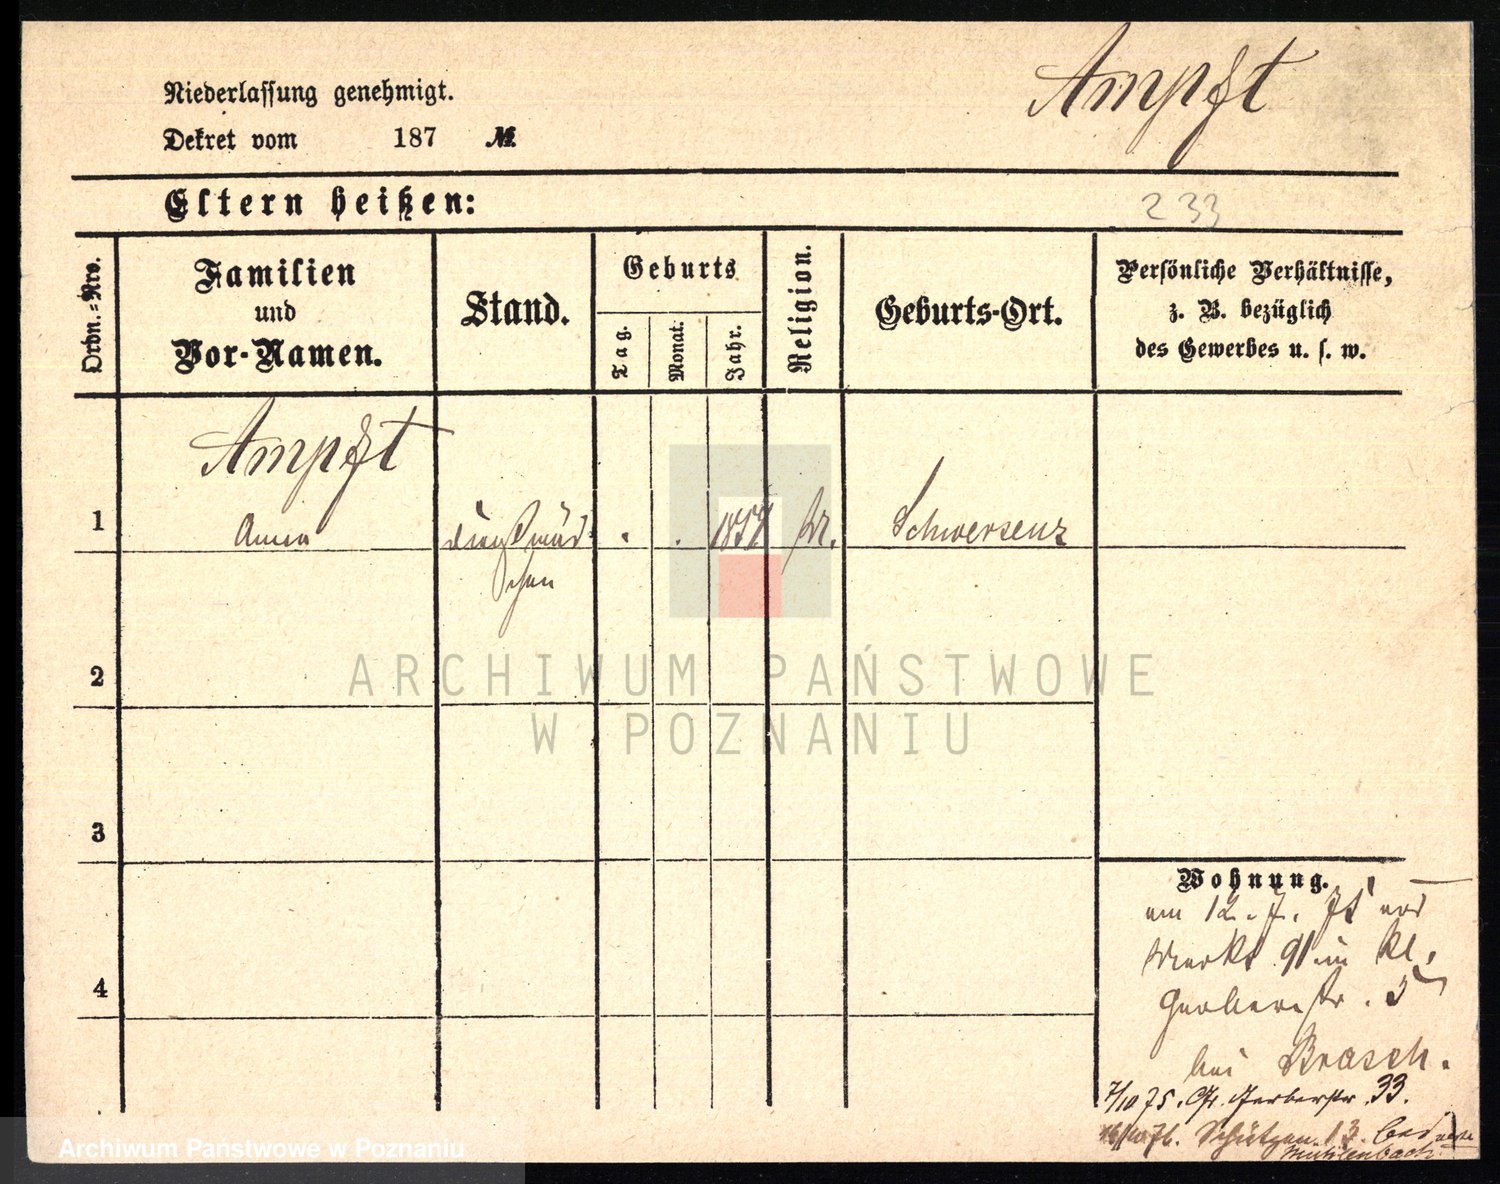 Ampft
Niederlassung genehmigt.
Dekret vom 187 №
Eltern heißen:
233
Ordn.=Nro.
Familien
und
Vor-Namen.
Stand.
Geburts
Tag.
Monat.
Jahr.
Religion.
Geburts-Ort.
Persönliche Verhältnisse,
z. B. bezüglich
des Gewerbes u. s. w.
Ampft
1
Anna
Dienstmäd
chen
1857
Schwersenz
2
ARCHIWUM PAŃSTWOWE
W POZNANIU
3
Wohnung.
am 12. 7. 75
Markt 91 in kl.
Gerberstr. 5
bei Brasch.
7/10 75. Gr. Gerberstr. 33.
76. Schützen 13. bei
Muhlenbach
4
Archiwum Państwowe w Poznaniu